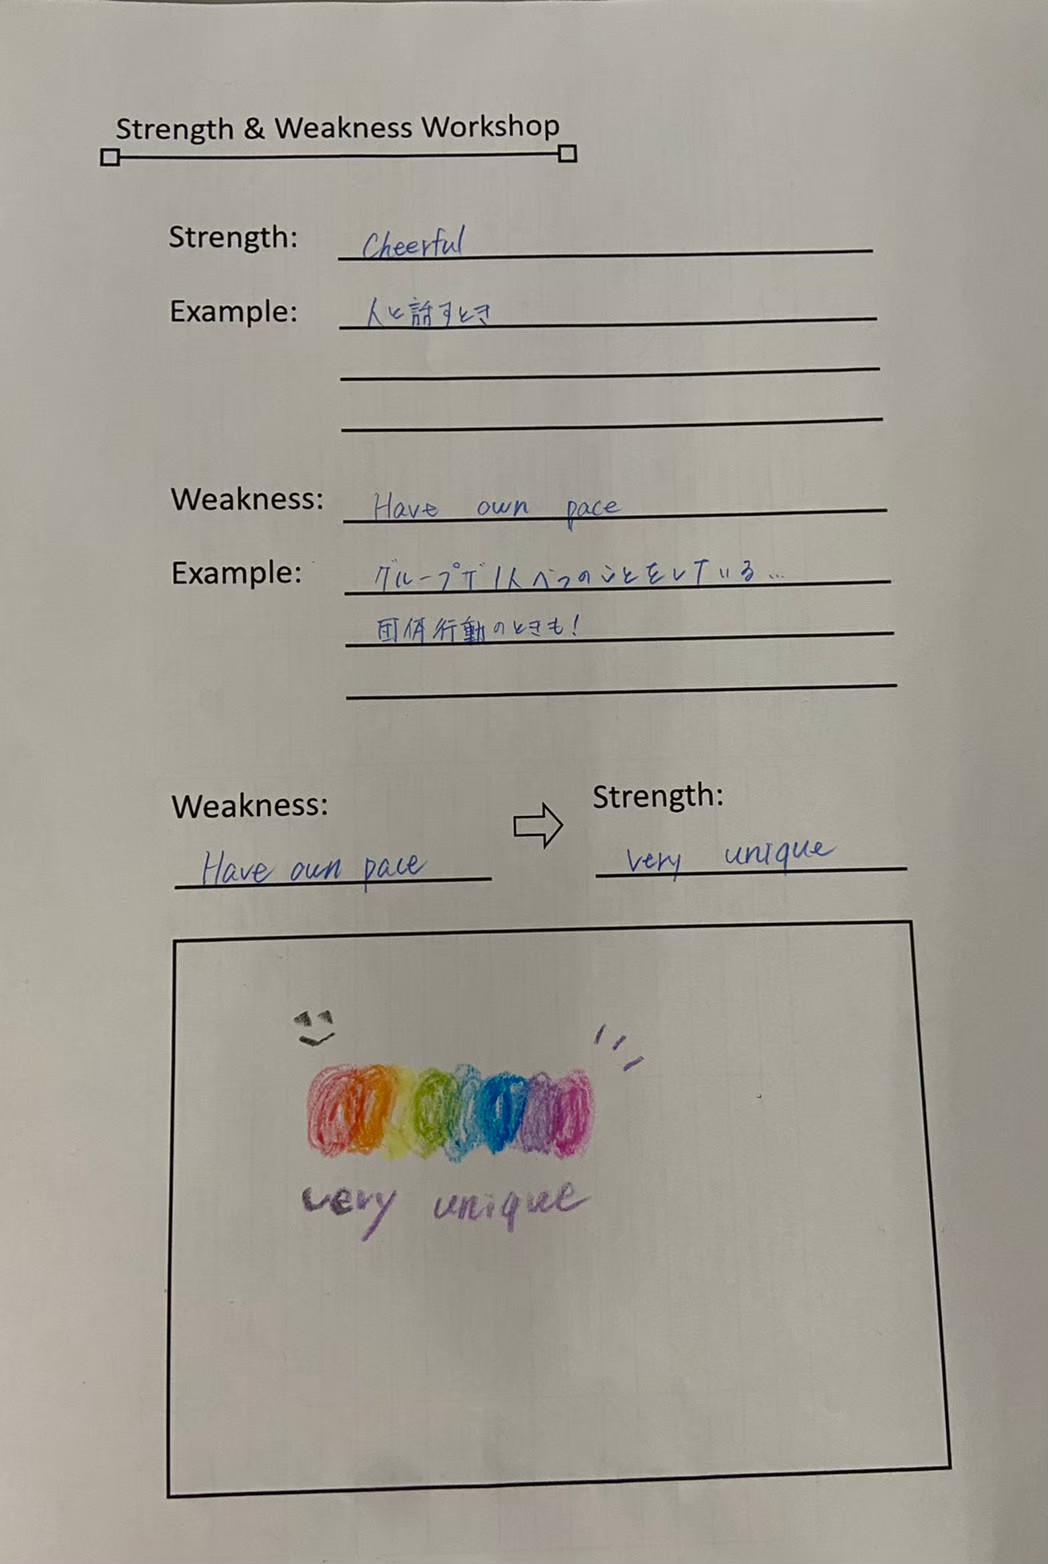 Strength & Weakness Workshop
Strength: Cheerful
Example: 人と話すとき
Weakness: Have own pace
Example: グループで1人べつのことをしている...
団体行動のときも!
Weakness: Strength:
Have own pace very unique
very unique